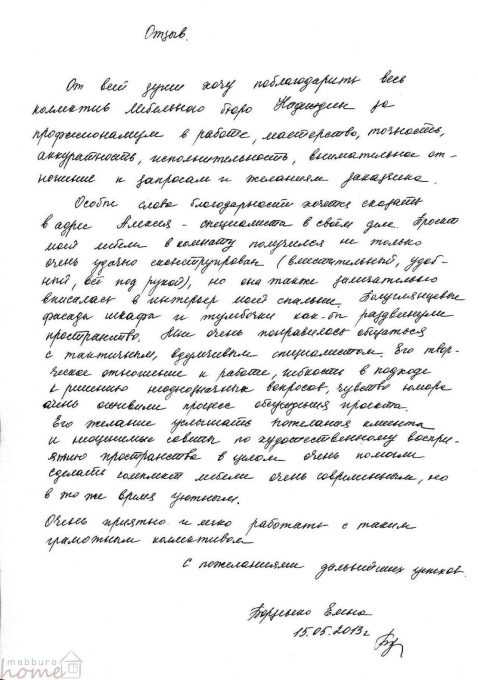 Отзыв.
От всей души хочу поблагодарить весь
коллектив Мебельного бюро за
профессионализм в работе, мастерство, точность,
аккуратность, исполнительность, внимательное от-
ношение к запросам и желаниям заказчика.
Особые слова благодарности хочется сказать
в адрес Алексея - специалиста в своём деле. Проект
моей мебели в комнату получился не только
очень удачно сконструирован (вместительный, удоб-
ный, всё под рукой), но она также замечательно
вписалась в интерьер моей спальни. Полуглянцевые
фасады шкафа и тумбочки как-бы раздвинули
пространство. Мне очень понравилось общаться
с тактичным, вдумчивым специалистом. Его твор-
ческое отношение к работе, гибкость в подходе
к решению неоднозначных вопросов, чувство юмора
очень оживили процесс обсуждения проекта.
Его желание услышать пожелания клиента
и советы по художественному воспри-
ятию пространства в целом очень помогли
сделать комплект мебели очень современным, но
в то же время уютным.
Очень приятно и легко работать с таким
грамотным коллективом
С пожеланиями дальнейших успехов.
Елена
15.05.2013г
mebburo
home